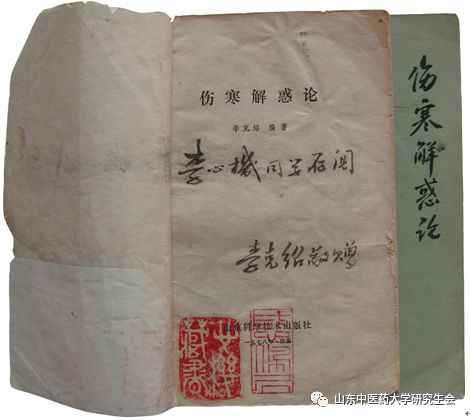 伤寒解惑论
李克绍 编著
李心机同学存阅
李克绍敬赠
山东科学技术出版社
一九七八年·济南
伤寒解惑论
山东中医药大学研究生会